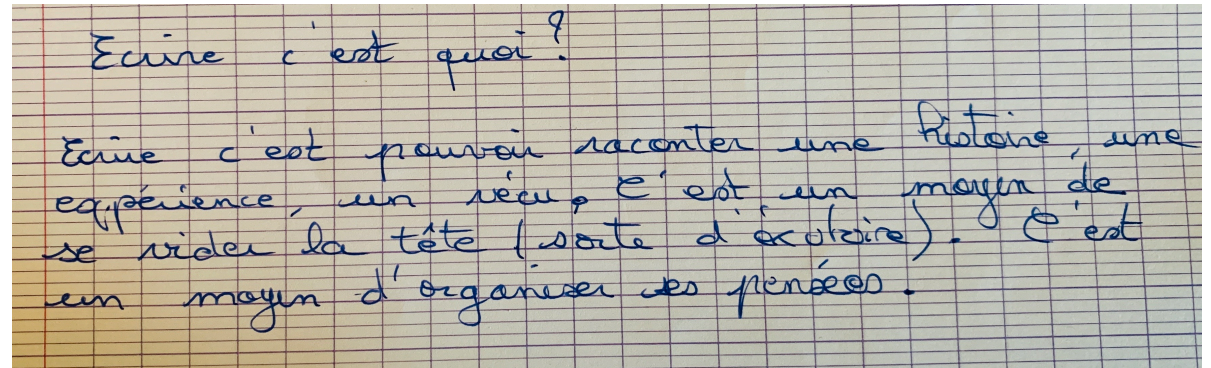 Ecrire c'est quoi ?
Ecrire c'est pouvoir raconter une histoire, une
expérience, un vécu, C'est un moyen de
se vider la tête (sorte d'exutoire). C'est
un moyen d'organiser ses pensées.